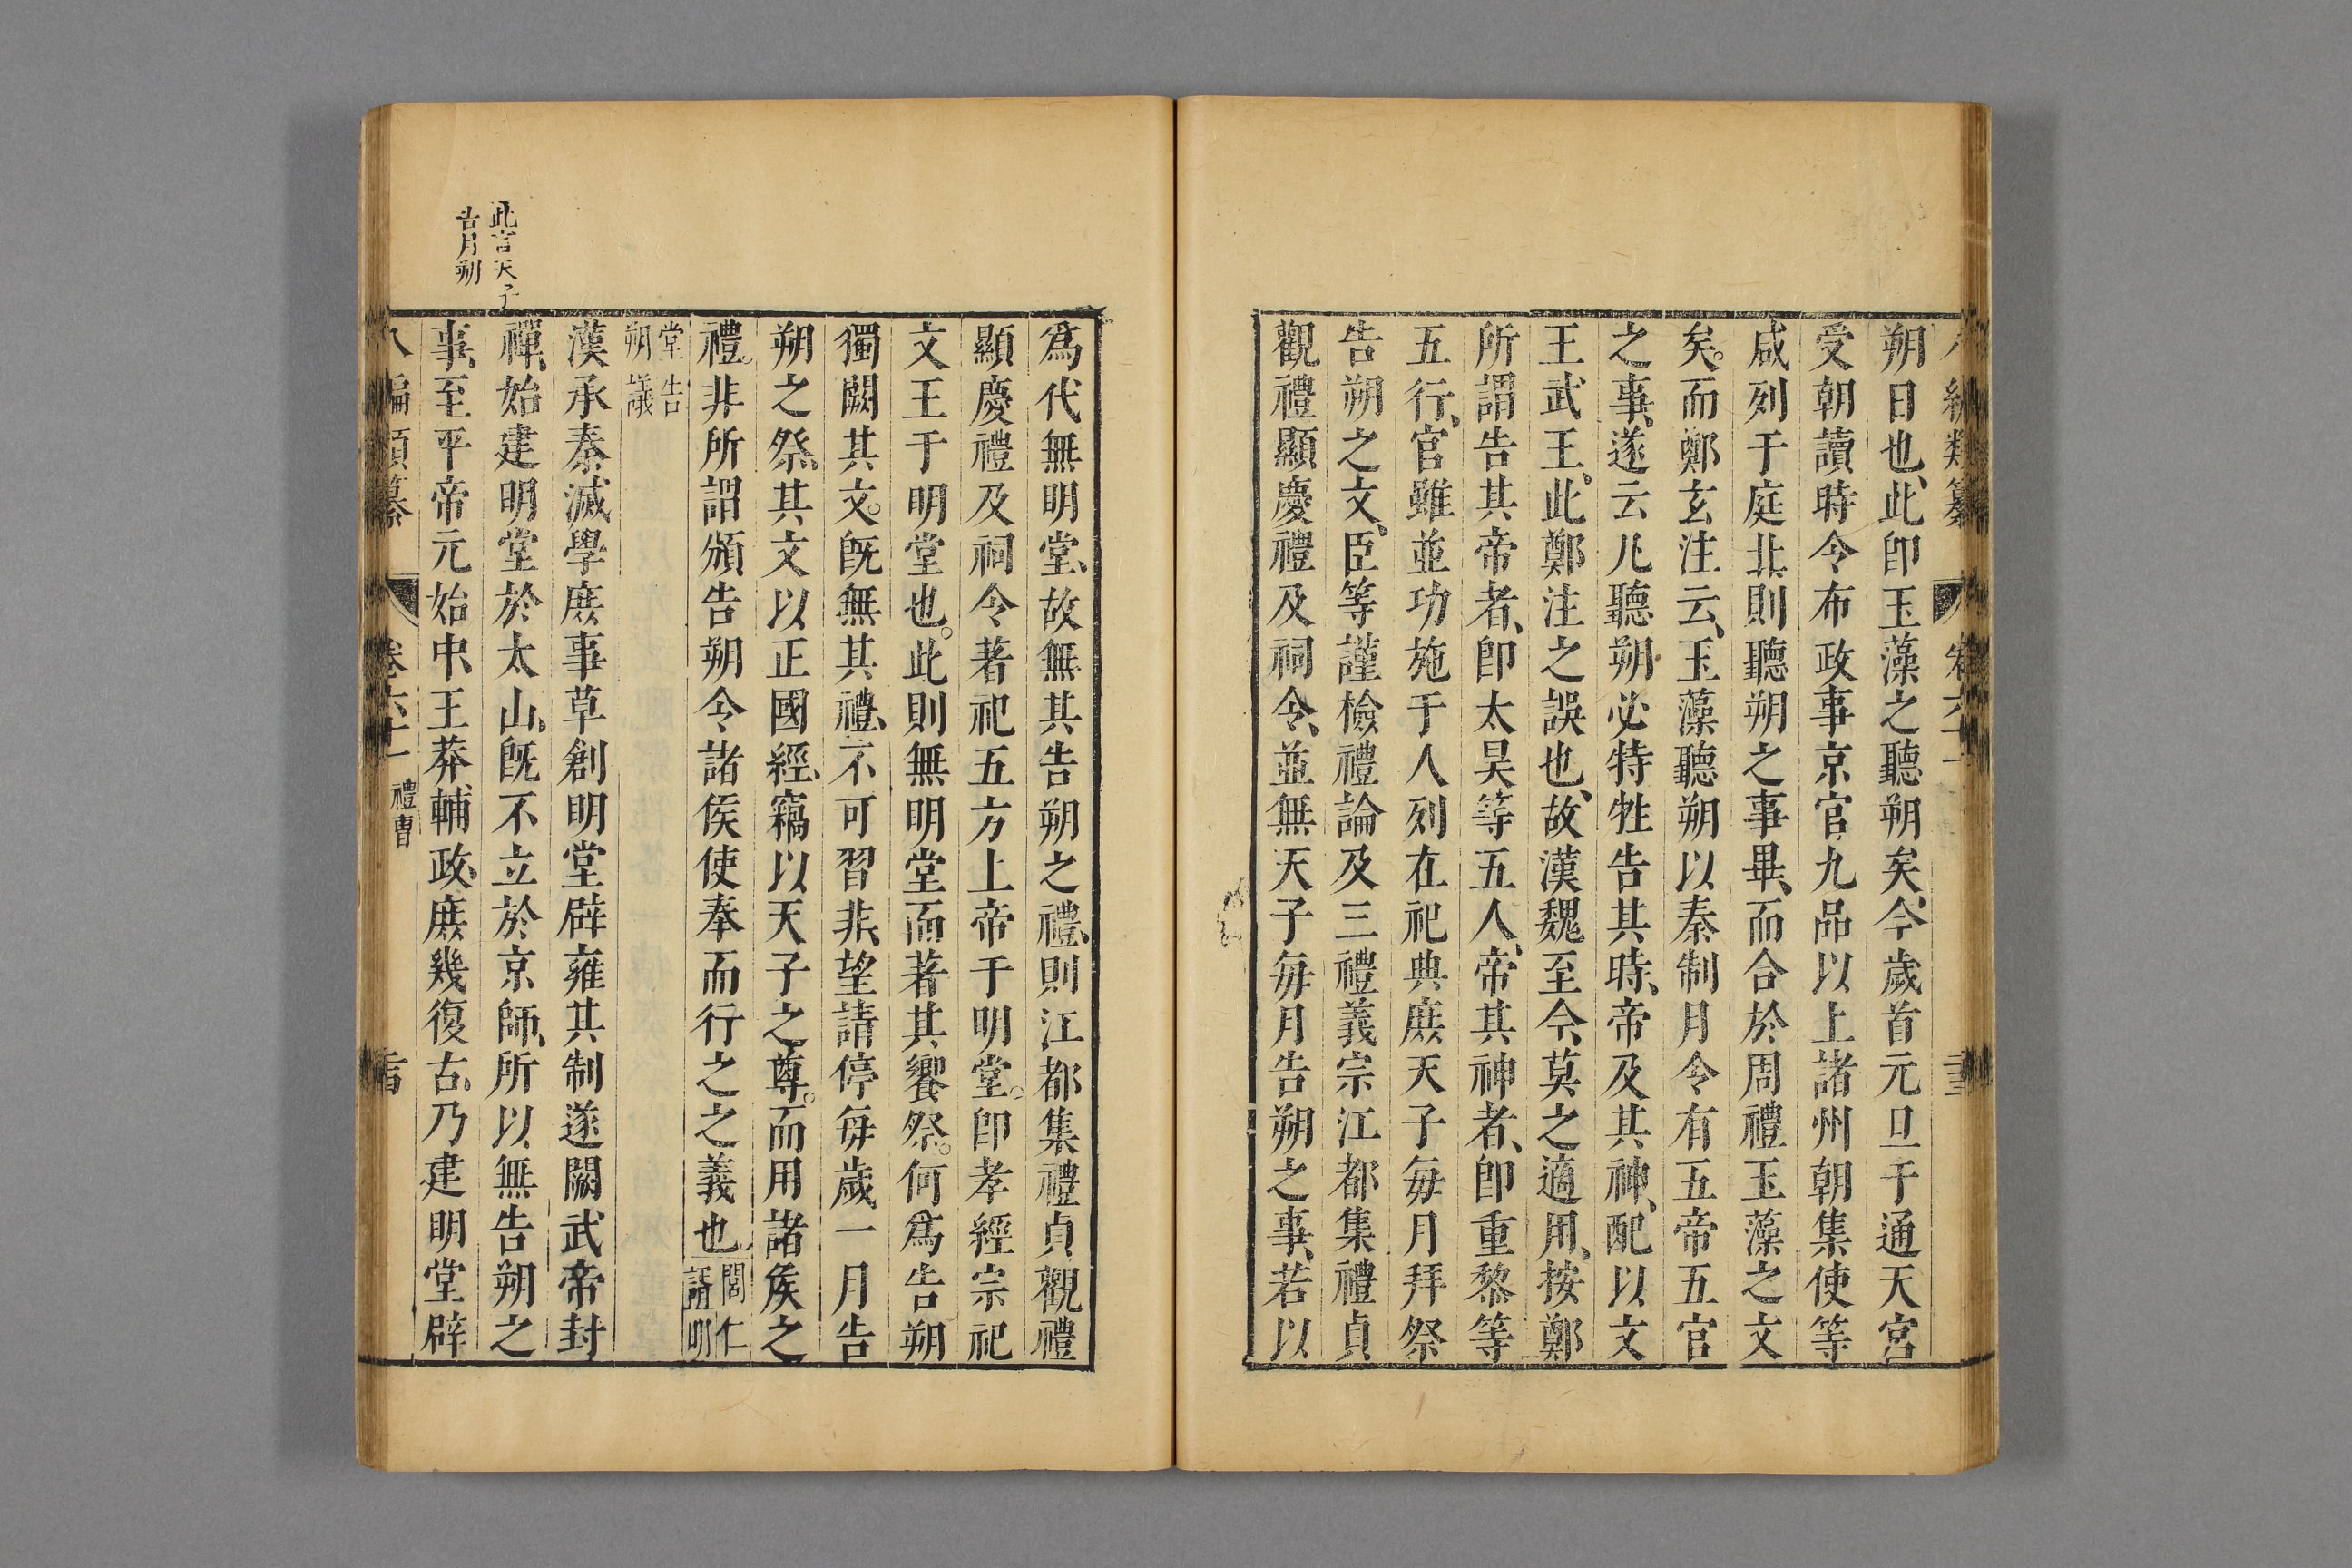 朔日也、此卽玉藻之聽朔矣、今歲首元旦于通天宮
受朝讀時令布政事京官九品以上諸州朝集使等
咸列于庭、此則聽朔之事畢、而合於周禮玉藻之文
矣。而鄭玄注云、玉藻聽朔以秦制月令有五帝五官
之事、遂云凡聽朔必特牲告其時、帝及其神、配以文
王武王、此鄭注之誤也、故漢魏至今、莫之適用、按鄭
所謂告其帝者、卽太昊等五人、帝其神者、卽重黎等
五行、官雖並功施于人列在祀典、庶天子每月拜祭
告朔之文、臣等謹檢禮論及三禮義宗江都集禮貞
觀禮顯慶禮及祠令、並無天子每月告朔之事、若以
爲代無明堂、故無其告朔之禮、則江都集禮貞觀禮
顯慶禮及祠令著祀五方上帝于明堂。卽孝經宗祀
文王于明堂也。此則無明堂而著其饗祭。何爲告朔
獨闕其文。旣無其禮、不可習非、望請停每歲一月告
朔之祭、其文以正國經、竊以天子之尊。而用諸侯之
禮。非所謂頒告朔令諸侯使奉而行之之義也 閻仁諝明
堂告朔議
漢承秦滅學庶事草創明堂辟雍其制遂闕武帝封
禪、始建明堂於太山。旣不立於京師、所以無告朔之
此言天子告月朔
事、至平帝元始中、王莽輔政、庶幾復古。乃建明堂辟
八編類纂 卷六十一 禮曹